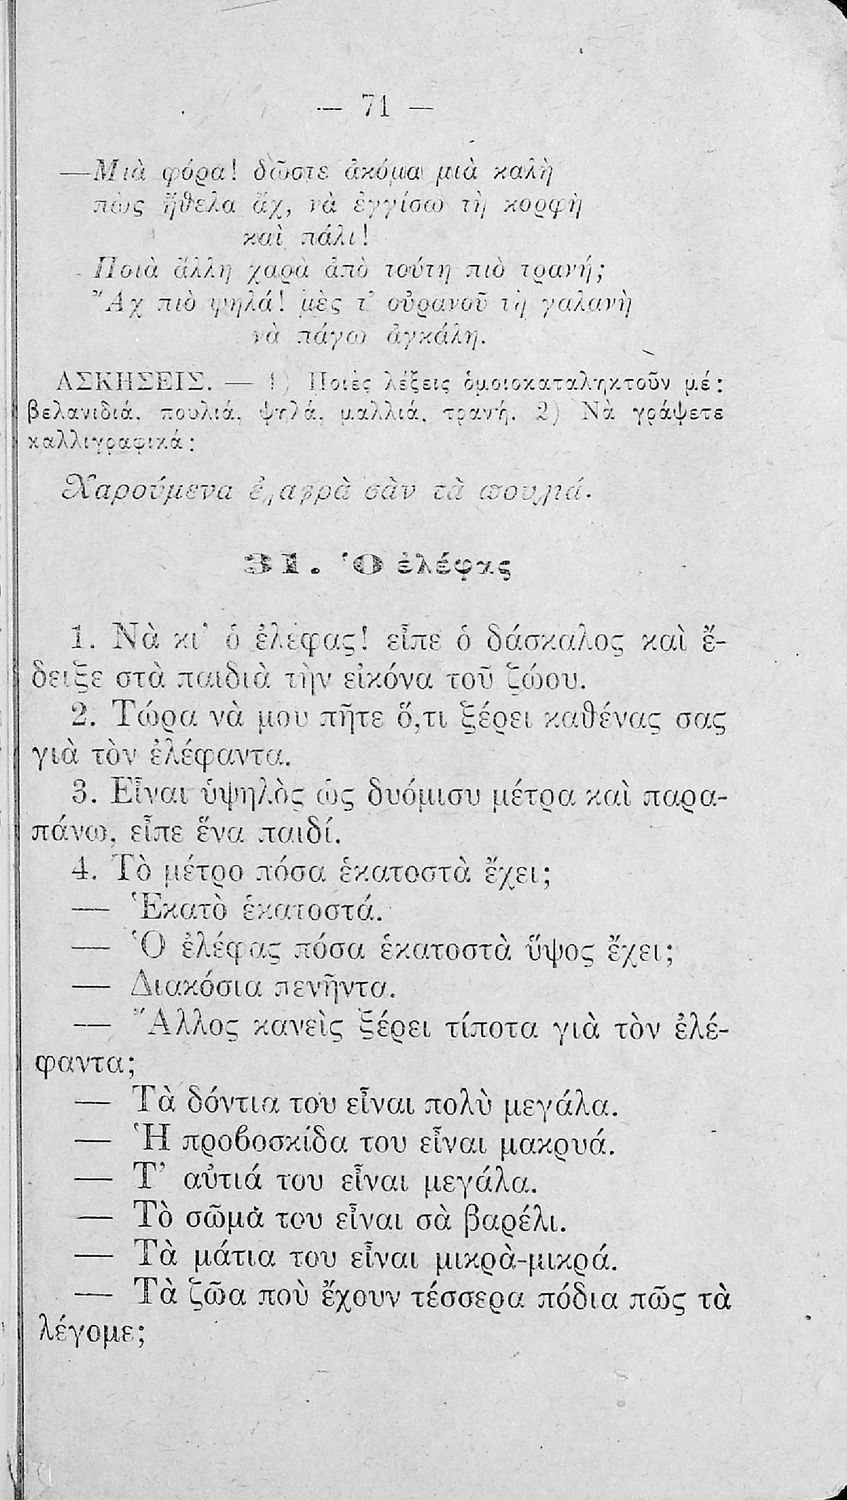 — 71 —
—Μιὰ φόρα! δῶστε ἀκόμα μιὰ καλὴ
πὼς ἤθελα ἄχ, νὰ ἐγγίσω τὴ κορφὴ
καὶ πάλι!
Ποιὰ ἄλλη χαρὰ ἀπὸ τούτη πιὸ τρανή;
Ἄχ πιὸ ψηλά! μὲς τ' οὐρανοῦ τὴ γαλανὴ
νὰ πάγω ἀγκάλη.
ΑΣΚΗΣΕΙΣ. — 1) Ποιὲς λέξεις ὁμοιοκαταληκτοῦν μέ:
βελανιδιά, πουλιά, ψηλά, μαλλιά, τρανή. 2) Νὰ γράψετε
καλλιγραφικά:
Χαρούμενα ἐλαφρὰ σὰν τὰ πουλιά.
31. Ὁ ἐλέφας
1. Νὰ κι' ὁ ἐλέφας! εἶπε ὁ δάσκαλος καὶ ἔ-
δειξε στὰ παιδιὰ τὴν εἰκόνα τοῦ ζώου.
2. Τώρα νὰ μου πῆτε ὅ,τι ξέρει καθένας σας
γιὰ τὸν ἐλέφαντα.
3. Εἶναι ὑψηλὸς ὡς δυόμισυ μέτρα καὶ παρα-
πάνω, εἶπε ἕνα παιδί.
4. Τὸ μέτρο πόσα ἑκατοστὰ ἔχει;
— Ἑκατὸ ἑκατοστά.
— Ὁ ἐλέφας πόσα ἑκατοστὰ ὕψος ἔχει;
— Διακόσια πενῆντα.
— Ἄλλος κανεὶς ξέρει τίποτα γιὰ τὸν ἐλέ-
φαντα;
— Τὰ δόντια του εἶναι πολὺ μεγάλα.
— Ἡ προβοσκίδα του εἶναι μακρυά.
— Τ' αὐτιά του εἶναι μεγάλα.
— Τὸ σῶμά του εἶναι σὰ βαρέλι.
— Τὰ μάτια του εἶναι μικρὰ-μικρά.
— Τὰ ζῶα ποὺ ἔχουν τέσσερα πόδια πῶς τὰ
λέγομε;